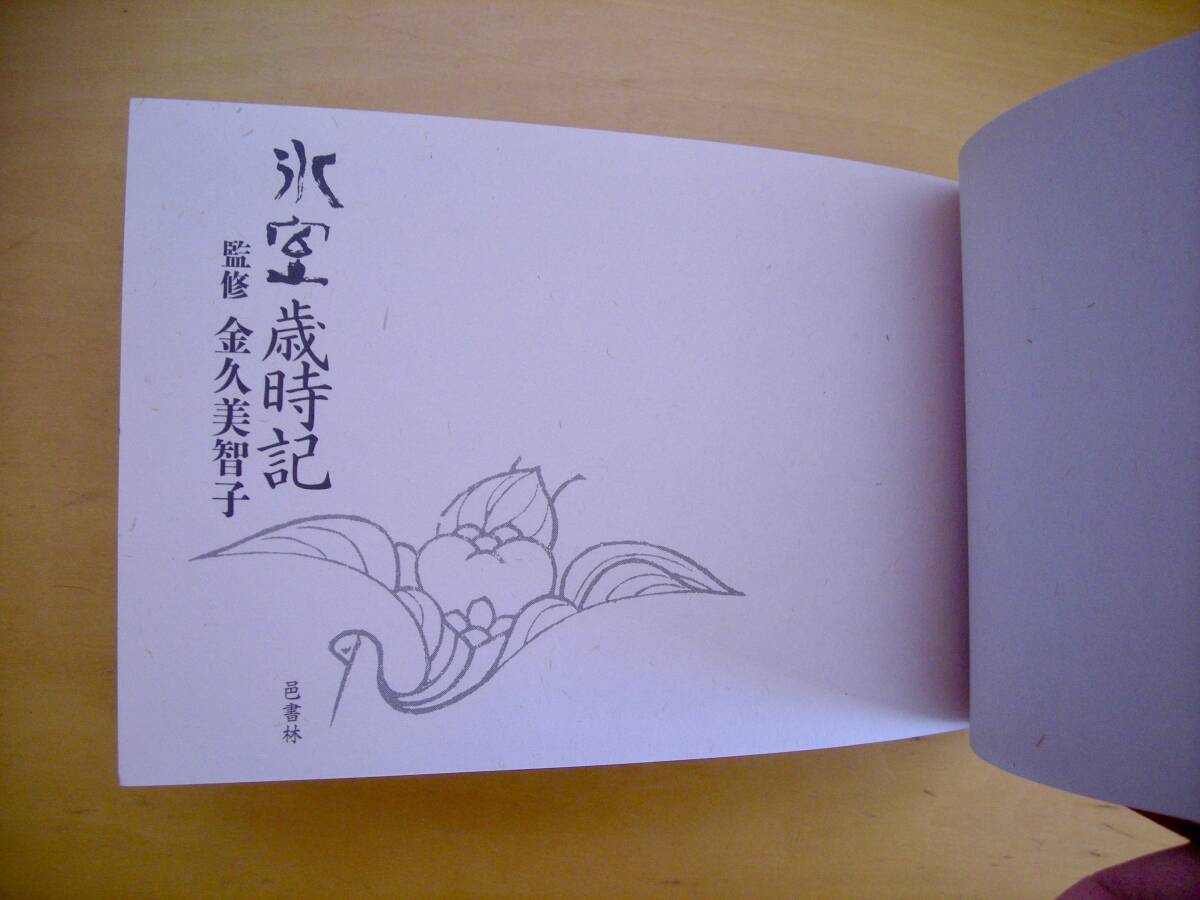 氷室歳時記
監修 金久美智子
邑書林